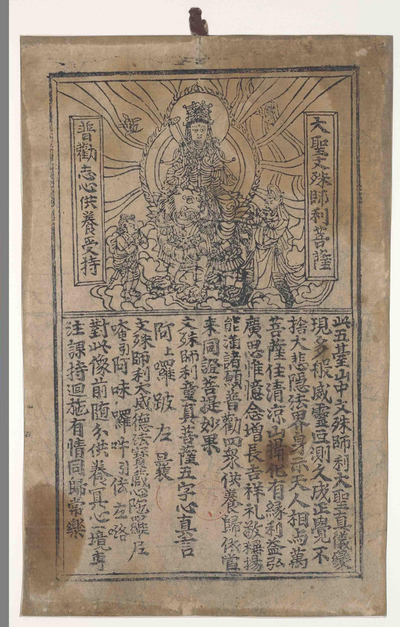 大聖文殊師利菩薩
普勸志心供養受持
此五臺山中文殊師利大聖真儀變
現多般威靈叵測久成正覺不
捨大悲隱法界身示天人相與萬
菩薩住清涼山攝化有緣利益弘
廣思惟憶念增長吉祥礼敬稱揚
能滿諸願普勸四衆供養歸依當
來同證菩提妙果
文殊師利童真菩薩五字心真言
阿上囉跛左曩
文殊師利大威德法寶藏心陁羅尼
唵引阿味囉吽引佉左洛
對此像前随分供養冥心一境專
注課持迴施有情同歸常樂